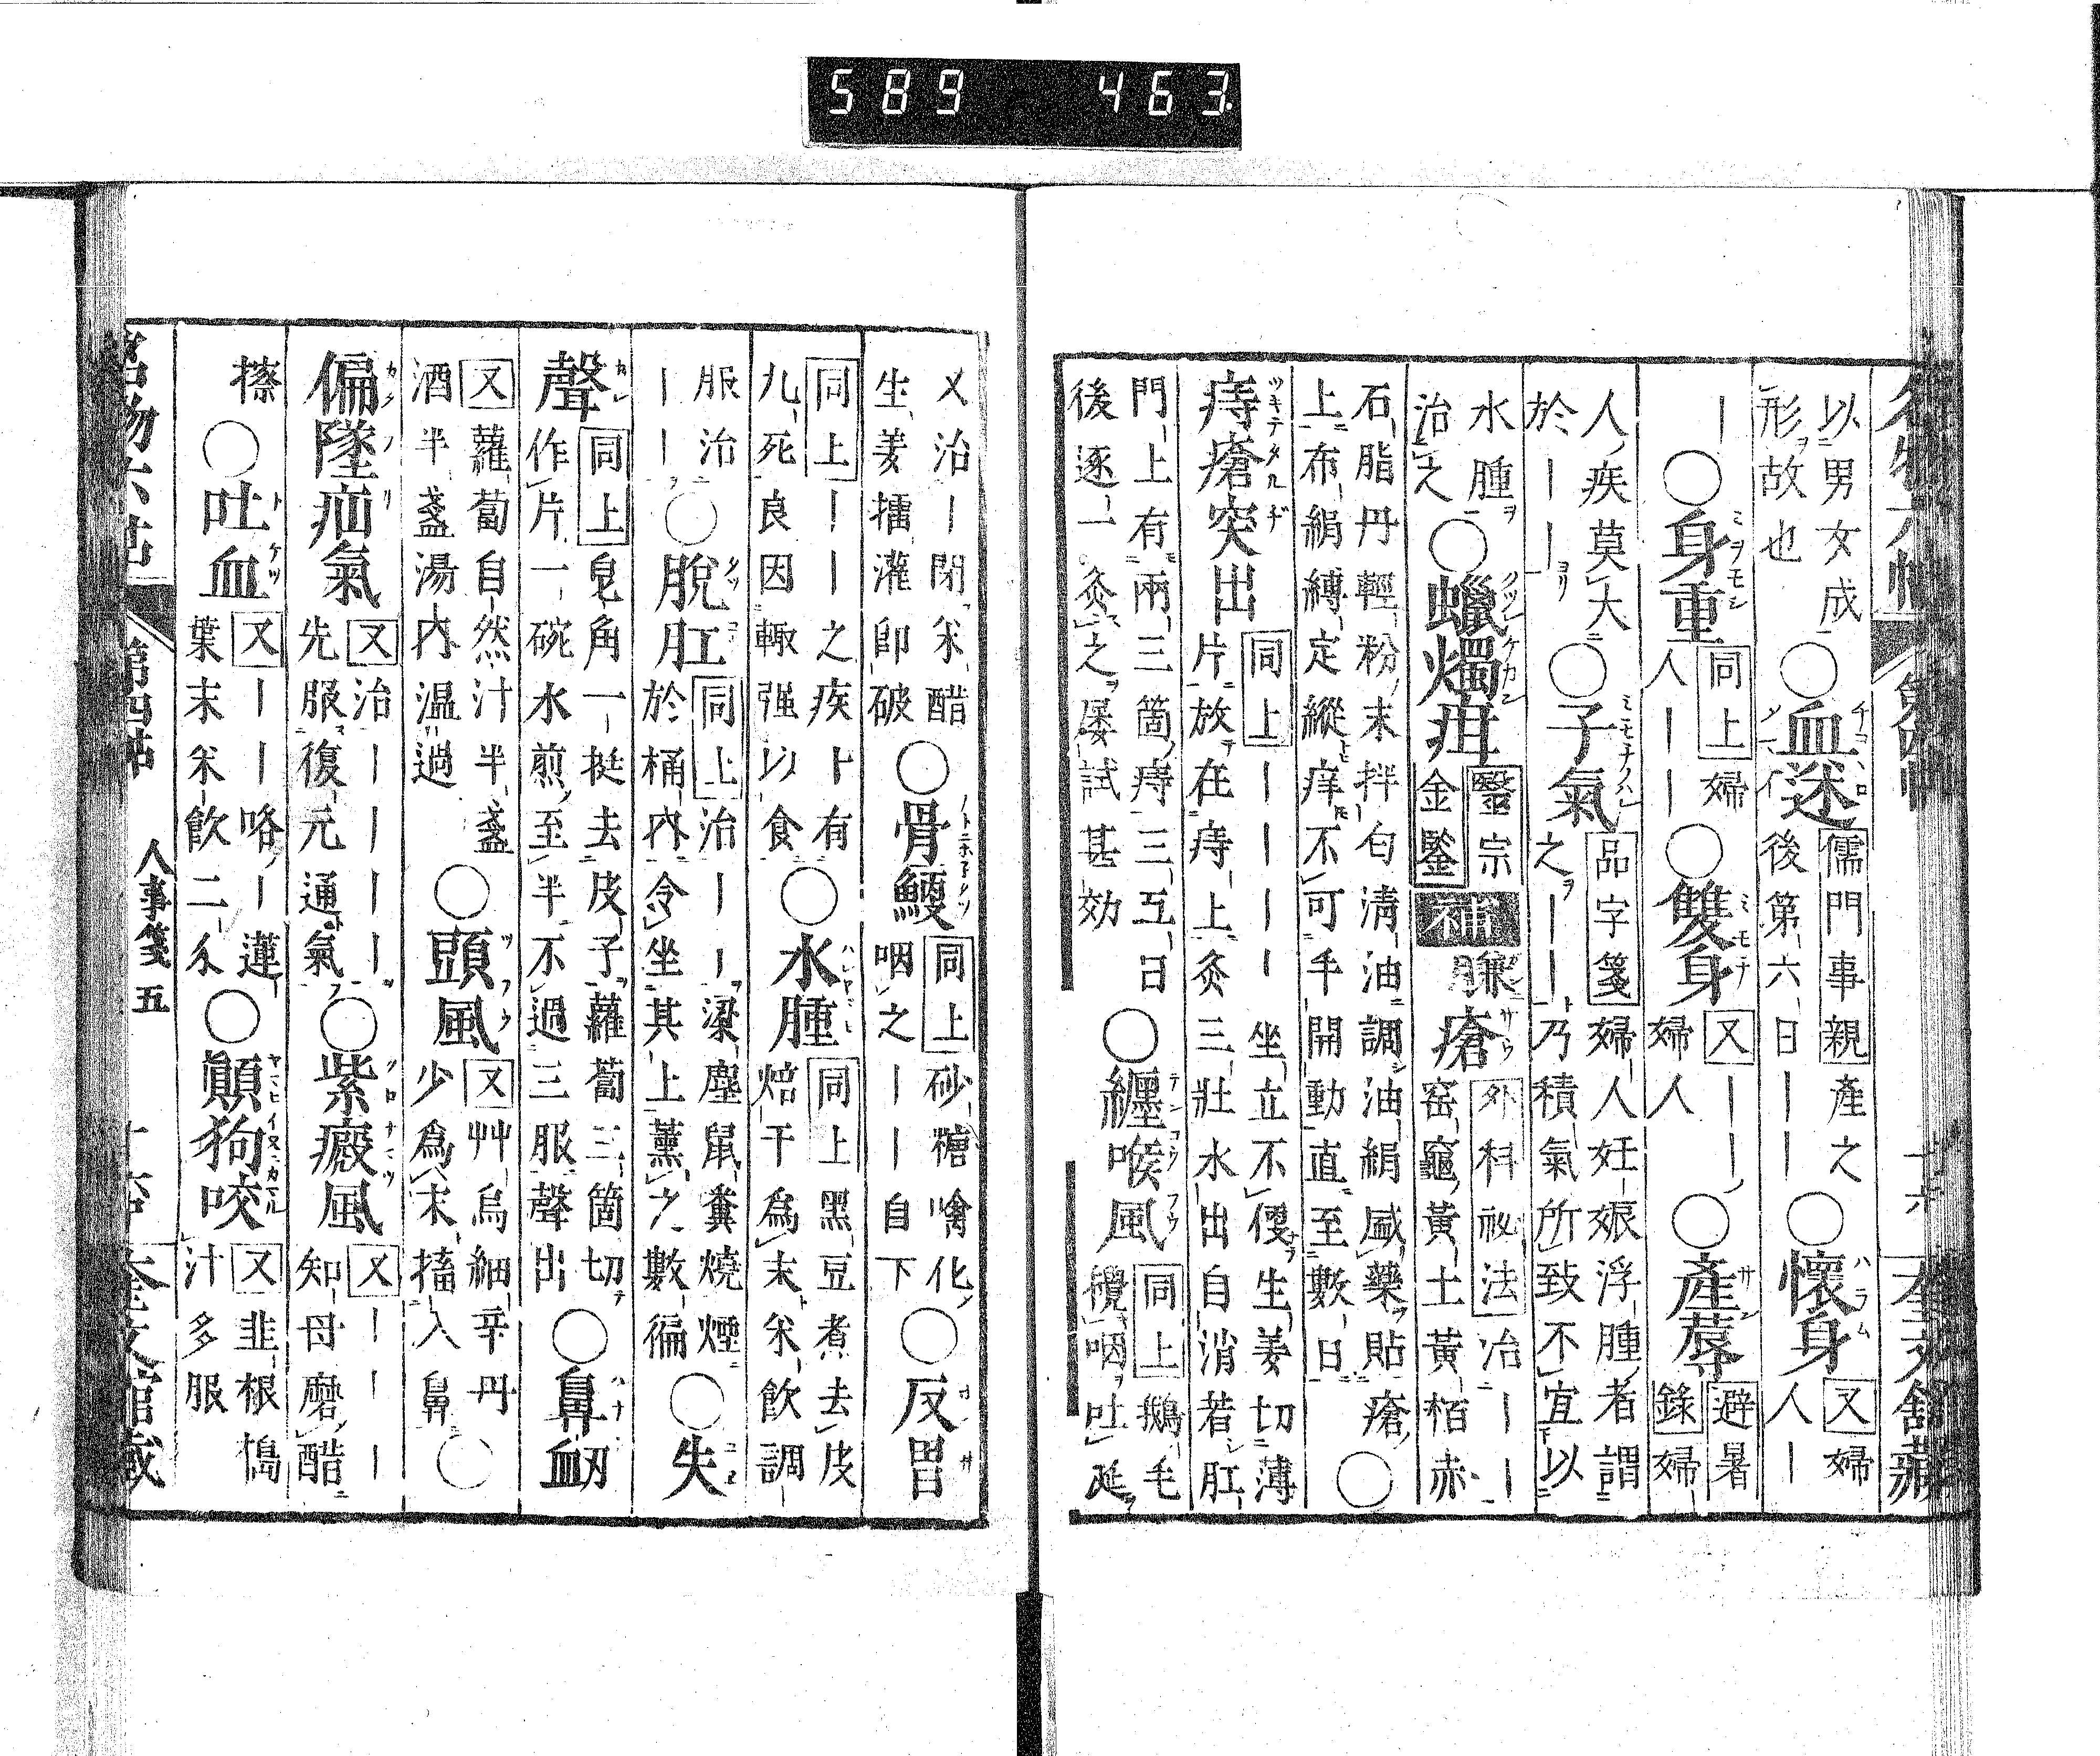 589 463
名物六帖 第四帖 十六 奎文舘藏
以男女成
形故也
○血迷
儒門事親 產之
後第六日――
○懷身
又 婦
人―
―○身重
同上 婦
人――
○雙身
又――
婦人
○產蓐
避暑
錄 婦
人疾莫大
於――
○子氣
品字箋 婦人妊娠浮腫者謂
之――乃積氣所致不宜以
水腫
治之
○蠟燭疳
醫宗
金鑒
補
臁瘡
外科祕法 治――
窑竈黃土黃栢赤
石脂丹輕粉末拌勻淸油調油絹盛藥貼瘡
上布絹縛定縱痒不可手開動直至數日
○
痔瘡突出
同上―――― 坐立不便生姜切薄
片放在痔上灸三壯水出自消若肛
門上有兩三箇痔三五日
後逐一灸之屡試甚効
○纏喉風
同上 鵝毛
攪咽吐涎
又治―閉米醋
生姜擂灌卽破
○骨鯁
同上 砂糖噙化
咽之――自下
○反胃
同上――之疾卜有
九死良因輙强以食
○水腫
同上 黑豆煮去皮
焙干爲末米飮調
服治
――
○脫肛
同上 治――梁塵鼠糞燒煙
於桶內令坐其上薰之數徧
○失
聲
同上 皂角一挺去皮子蘿蔔三箇切
作片一碗水煎至半不過三服聲出
○鼻衂
又 蘿蔔自然汁半盞
酒半盞湯內温過
○頭風
又 艸烏細辛丹
少爲末搐入鼻
○
偏墜疝氣
又 治――――
先服復元通氣
○紫癜風
又―――
知母磨醋
擦
○吐血
又――咯―蓮
葉末米飮二
○顚狗咬
又 韭根搗
汁多服
名物六帖 第四帖 人事箋五 奎文舘藏